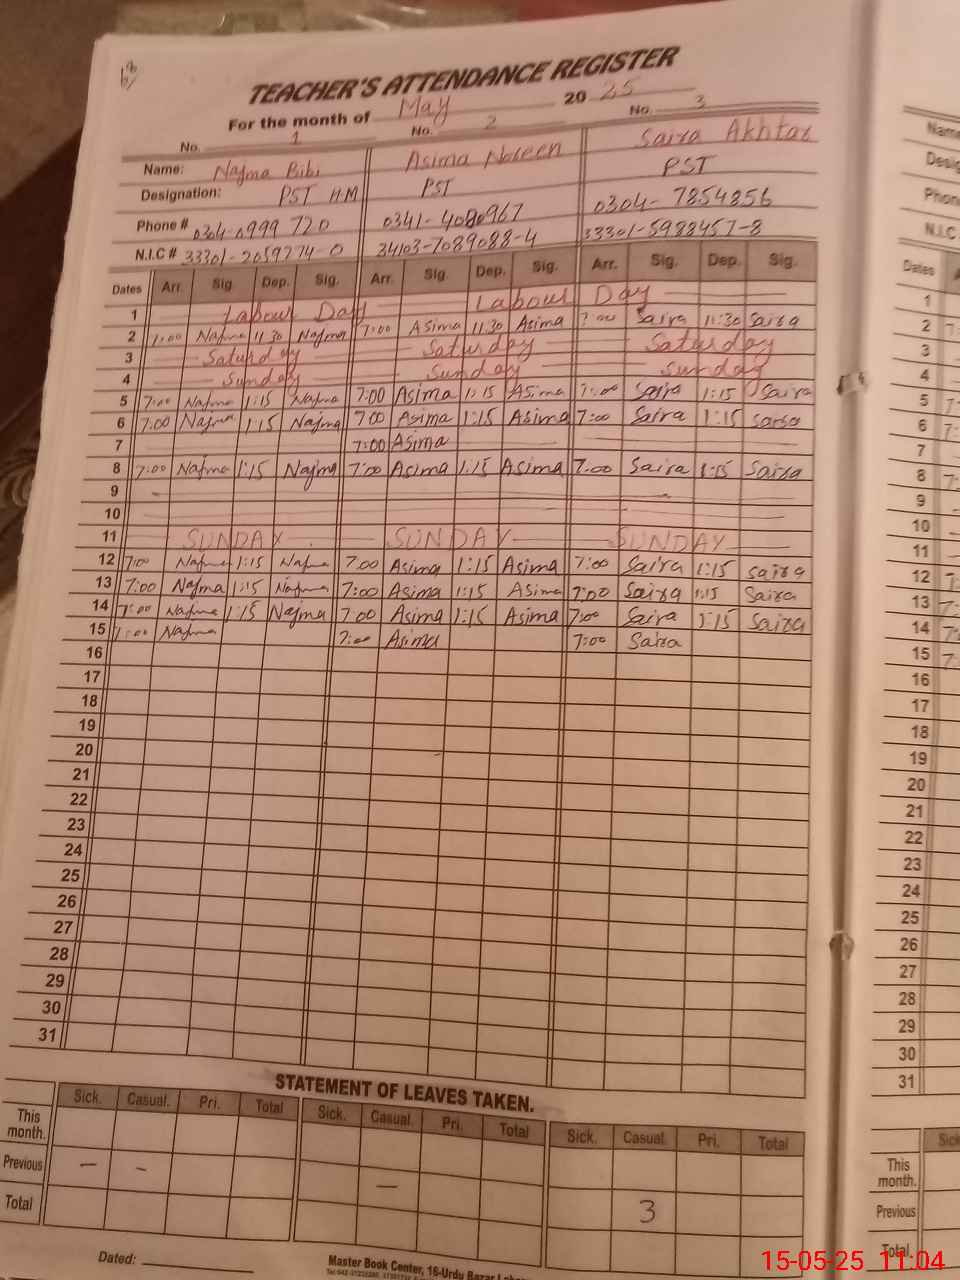 TEACHER'S ATTENDANCE REGISTER
For the month of May 2025
No. 1 No. 2 No. 3
Name: Najma Bibi Asima Noreen Saira Akhtar
Designation: PST HM PST PST
Phone # 0341-4080967 0304-7854856
N.I.C # 33301-2059274-0 34103-7089088-4 33301-5988457-8
Dates Arr. Sig. Dep. Sig. Arr. Sig. Dep. Sig. Arr. Sig. Dep. Sig.
1 Labour Day Labour Day
2 7:00 Najma 11:30 Najma 7:00 Asima 11:30 Asima 7:00 Saira 11:30 Saira
3 Saturday Saturday Saturday
4 Sunday Sunday Sunday
5 7:00 Najma 1:15 Najma 7:00 Asima 1:15 Asima 7:00 Saira 1:15 Saira
6 7:00 Najma 1:15 Najma 7:00 Asima 1:15 Asima 7:00 Saira 1:15 Saira
7 7:00 Asima
8 7:00 Najma 1:15 Najma 7:00 Asima 1:15 Asima 7:00 Saira 1:15 Saira
9
10
11 SUNDAY SUNDAY SUNDAY
12 7:00 Najma 1:15 Najma 7:00 Asima 1:15 Asima 7:00 Saira 1:15 Saira
13 7:00 Najma 1:15 Najma 7:00 Asima 1:15 Asima 7:00 Saira 1:15 Saira
14 7:00 Najma 1:15 Najma 7:00 Asima 1:15 Asima 7:00 Saira 1:15 Saira
15 7:00 Najma 7:00 Asima 7:00 Saira
16
17
18
19
20
21
22
23
24
25
26
27
28
29
30
31
STATEMENT OF LEAVES TAKEN.
Sick. Casual. Pri. Total Sick. Casual. Pri. Total Sick. Casual. Pri. Total
This month.
Previous – – –
Total 3
Dated:
Master Book Center, 16-Urdu Bazar
Dates
1
2 7:
3
4
5 7
6 7:
7
8 7:
9
10
11
12 7:
13 7:
14 7:
15 7:
16
17
18
19
20
21
22
23
24
25
26
27
28
29
30
31
This month.
Previous
Total
15-05-25 11:04